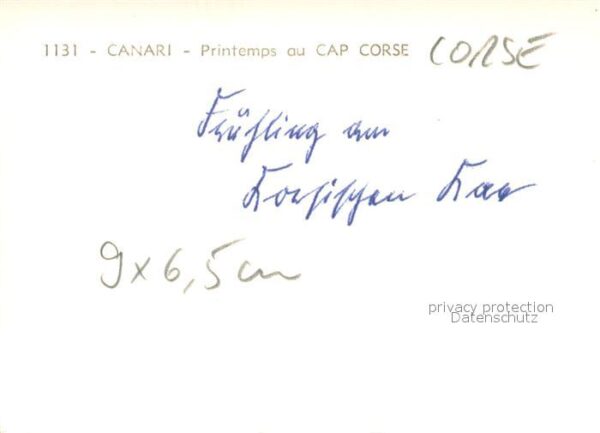 1131 - CANARI - Printemps au CAP CORSE CORSE
Frühling am
Korsischen Kap
9 x 6,5 cm
privacy protection
Datenschutz